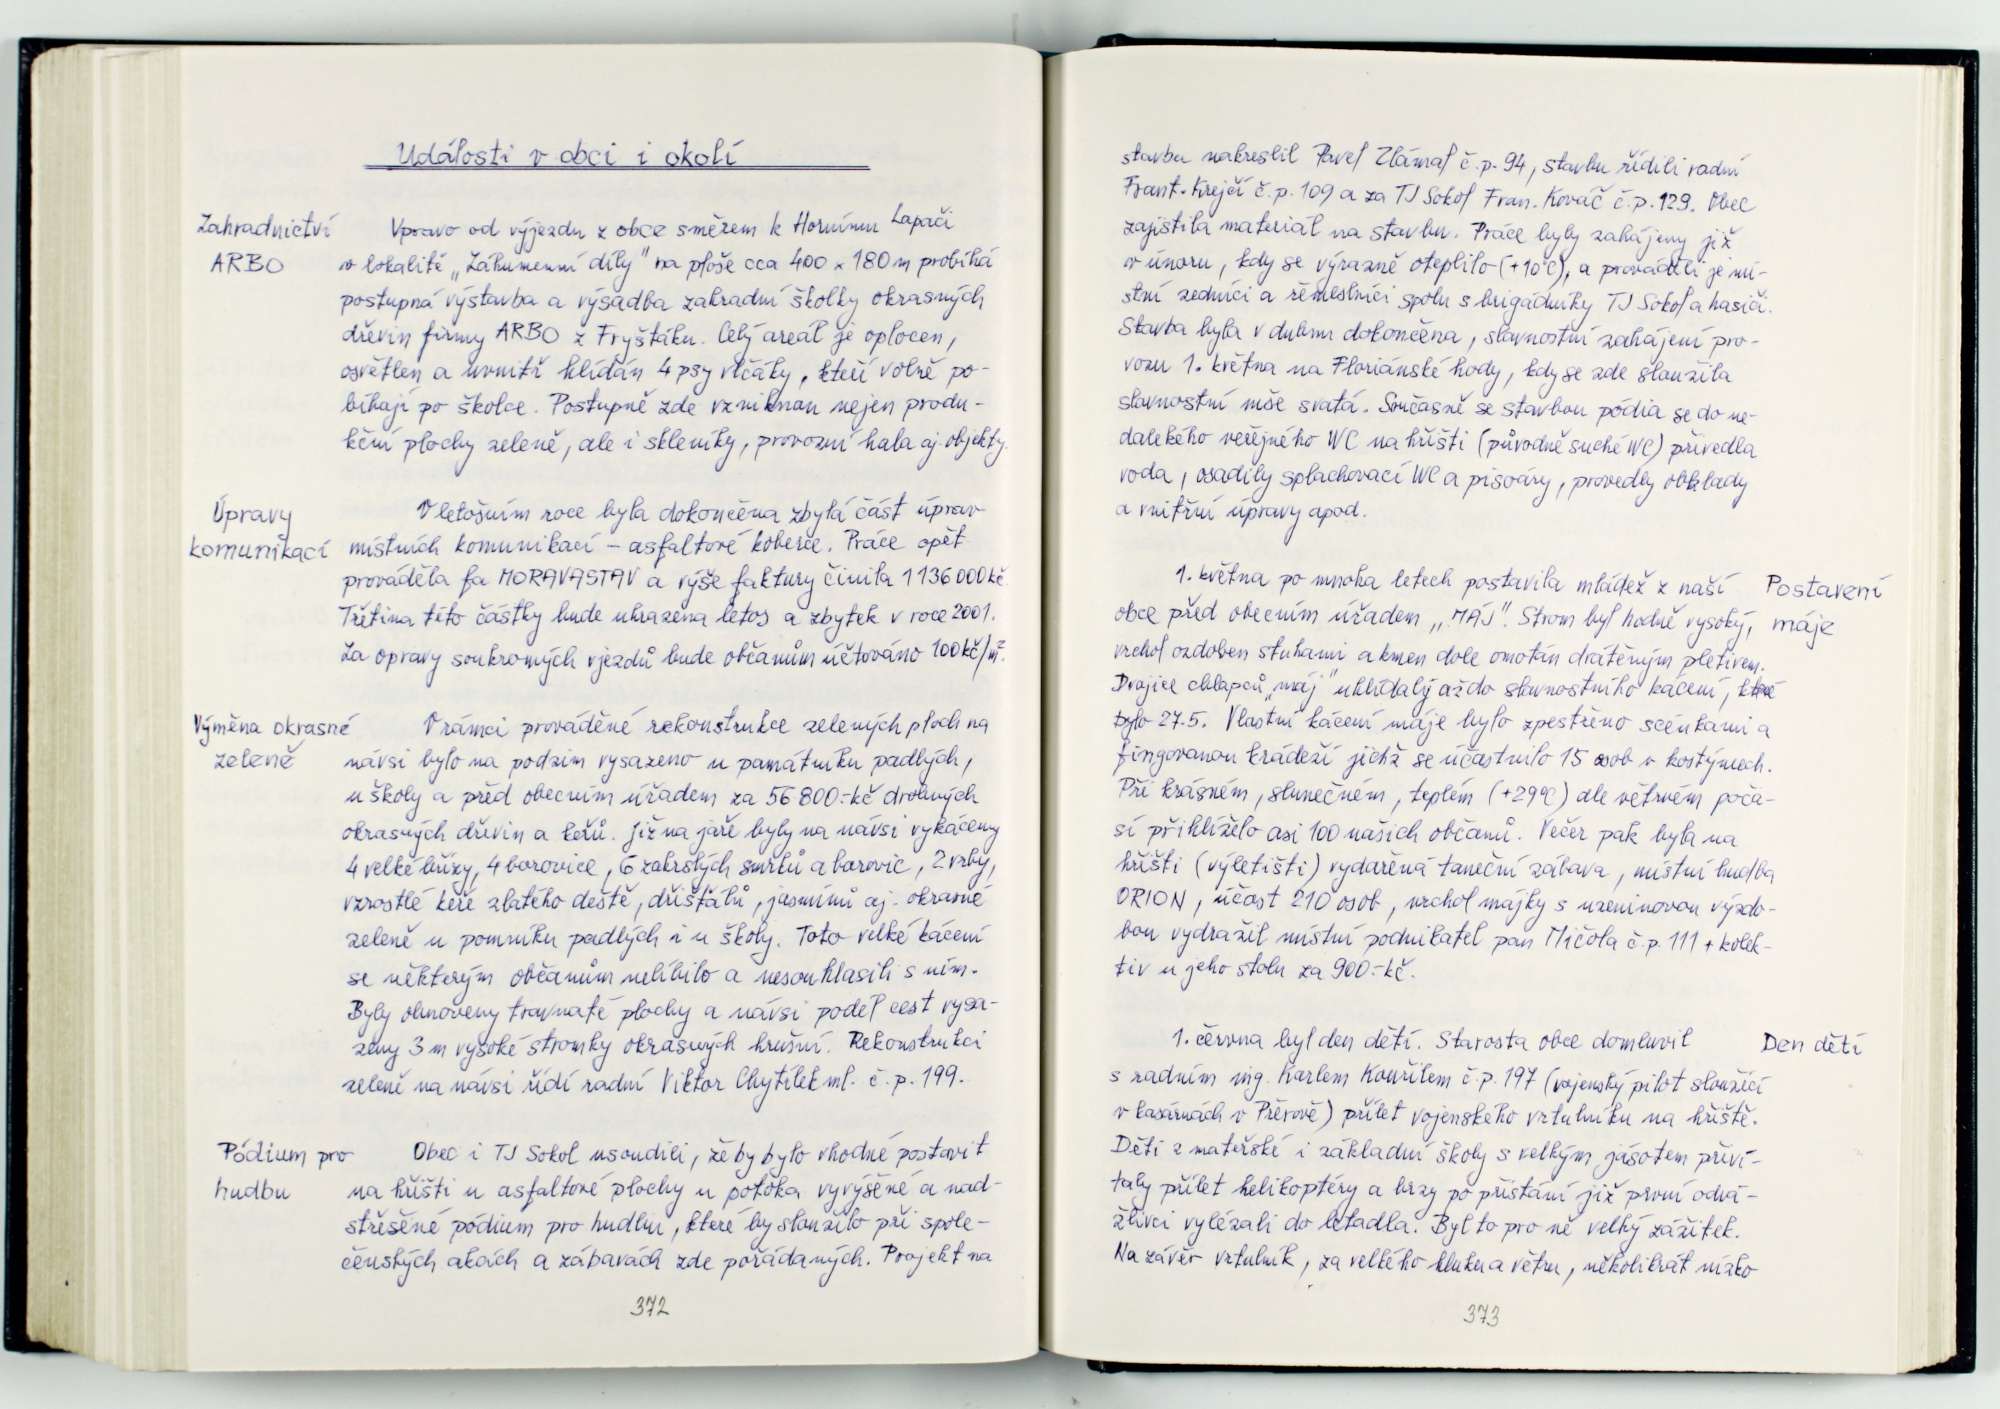 Události v obci i okolí
Zahradnictví
ARBO
Vpravo od výjezdu z obce směrem k Hornímu Lapači
v lokalitě „Záhumenní díly" na ploše cca 400 x 180 m probíhá
postupná výstavba a výsadba zahradní školky okrasných
dřevin firmy ARBO z Fryštáku. Celý areál je oplocen,
osvětlen a uvnitř hlídán 4 psy vlčáky, kteří volně po-
bíhají po školce. Postupně zde vzniknou nejen produ-
kční plochy zeleně, ale i skleníky, provozní hala aj. objekty.
Úpravy
komunikací
V letošním roce byla dokončena zbylá část úprav
místních komunikací – asfaltové koberce. Práce opět
prováděla fa MORAVASTAV a výše faktury činila 1 136 000 kč.
Třetina této částky bude uhrazena letos a zbytek v roce 2001.
Za opravy soukromých vjezdů bude občanům účtováno 100 kč/m².
Výměna okrasné
zeleně
V rámci prováděné rekonstrukce zelených ploch na
návsi bylo na podzim vysazeno u památníku padlých,
u školy a před obecním úřadem za 56 800.-kč drobných
okrasných dřevin a keřů. Již na jaře byly na návsi vykáceny
4 velké břízy, 4 borovice, 6 zakrslých smrků a borovic, 2 vrby,
vzrostlé keře zlatého deště, dřišťálů, jasmínů aj. okrasné
zeleně u pomníku padlých i u školy. Toto velké kácení
se některým občanům nelíbilo a nesouhlasili s ním.
Byly obnoveny travnaté plochy a návsi podél cest vysa-
zeny 3 m vysoké stromky okrasných hrušní. Rekonstrukci
zeleně na návsi řídí radní Viktor Chytílek ml. č.p. 199.
Pódium pro
hudbu
Obec i TJ Sokol usoudili, že by bylo vhodné postavit
na hřišti u asfaltové plochy u potoka vyvýšené a nad-
střešené pódium pro hudbu, které by sloužilo při spole-
čenských akách a zábavách zde pořádaných. Projekt na
372
stavbu nakreslil Pavel Zlámal č.p. 94, stavbu řídili radní
Frant. Krejčí č.p. 109 a za TJ Sokol Fran. Kováč č.p. 129. Obec
zajistila materiál na stavbu. Práce byly zahájeny již
v únoru, kdy se výrazně oteplilo (+10°C), a prováděli je mí-
stní zedníci a řemeslníci spolu s brigádníky TJ Sokol a hasiči.
Stavba byla v dubnu dokončena, slavnostní zahájení pro-
vozu 1. května na Floriánské hody, kdy se zde sloužila
slavnostní mše svatá. Současně se stavbou pódia se do ne-
dalekého veřejného WC na hřišti (původně suché WC) přivedla
voda, osadily splachovací WC a pisoáry, provedly obklady
a vnitřní úpravy apod.
1. května po mnoha letech postavila mládež z naší
obce před obecním úřadem „MÁJ". Strom byl hodně vysoký,
vrchol ozdoben stuhami a kmen dole omotán drátěným pletivem.
Dvojice chlapců „máj" uhlídaly až do slavnostního kácení, které
bylo 27.5. Vlastní kácení máje bylo zpestřeno scénkami a
fingovanou krádeží jichž se účastnilo 15 osob v kostýmech.
Při krásném, slunečném, teplém (+29°C) ale větrném poča-
sí přihlíželo asi 100 našich občanů. Večer pak byla na
hřišti (výletišti) vydařená taneční zábava, místní hudba
ORION, účast 210 osob, vrchol májky s uzeninovou výzdo-
bou vydražil místní podnikatel pan Mičola č.p. 111 + kolek-
tiv u jeho stolu za 900.-kč.
Postavení
máje
1. června byl den dětí. Starosta obce domluvil
s radním ing. Karlem Kouřilem č.p. 197 (vojenský pilot sloužící
v kasárnách v Přerově) přílet vojenského vrtulníku na hřiště.
Děti z mateřské i základní školy s velkým jásotem přiví-
taly přílet helikoptéry a brzy po přistání již první odvá-
žlivci vylézali do letadla. Byl to pro ně velký zážitek.
Na závěr vrtulník, za velkého hluku a větru, několikrát nízko
Den dětí
373